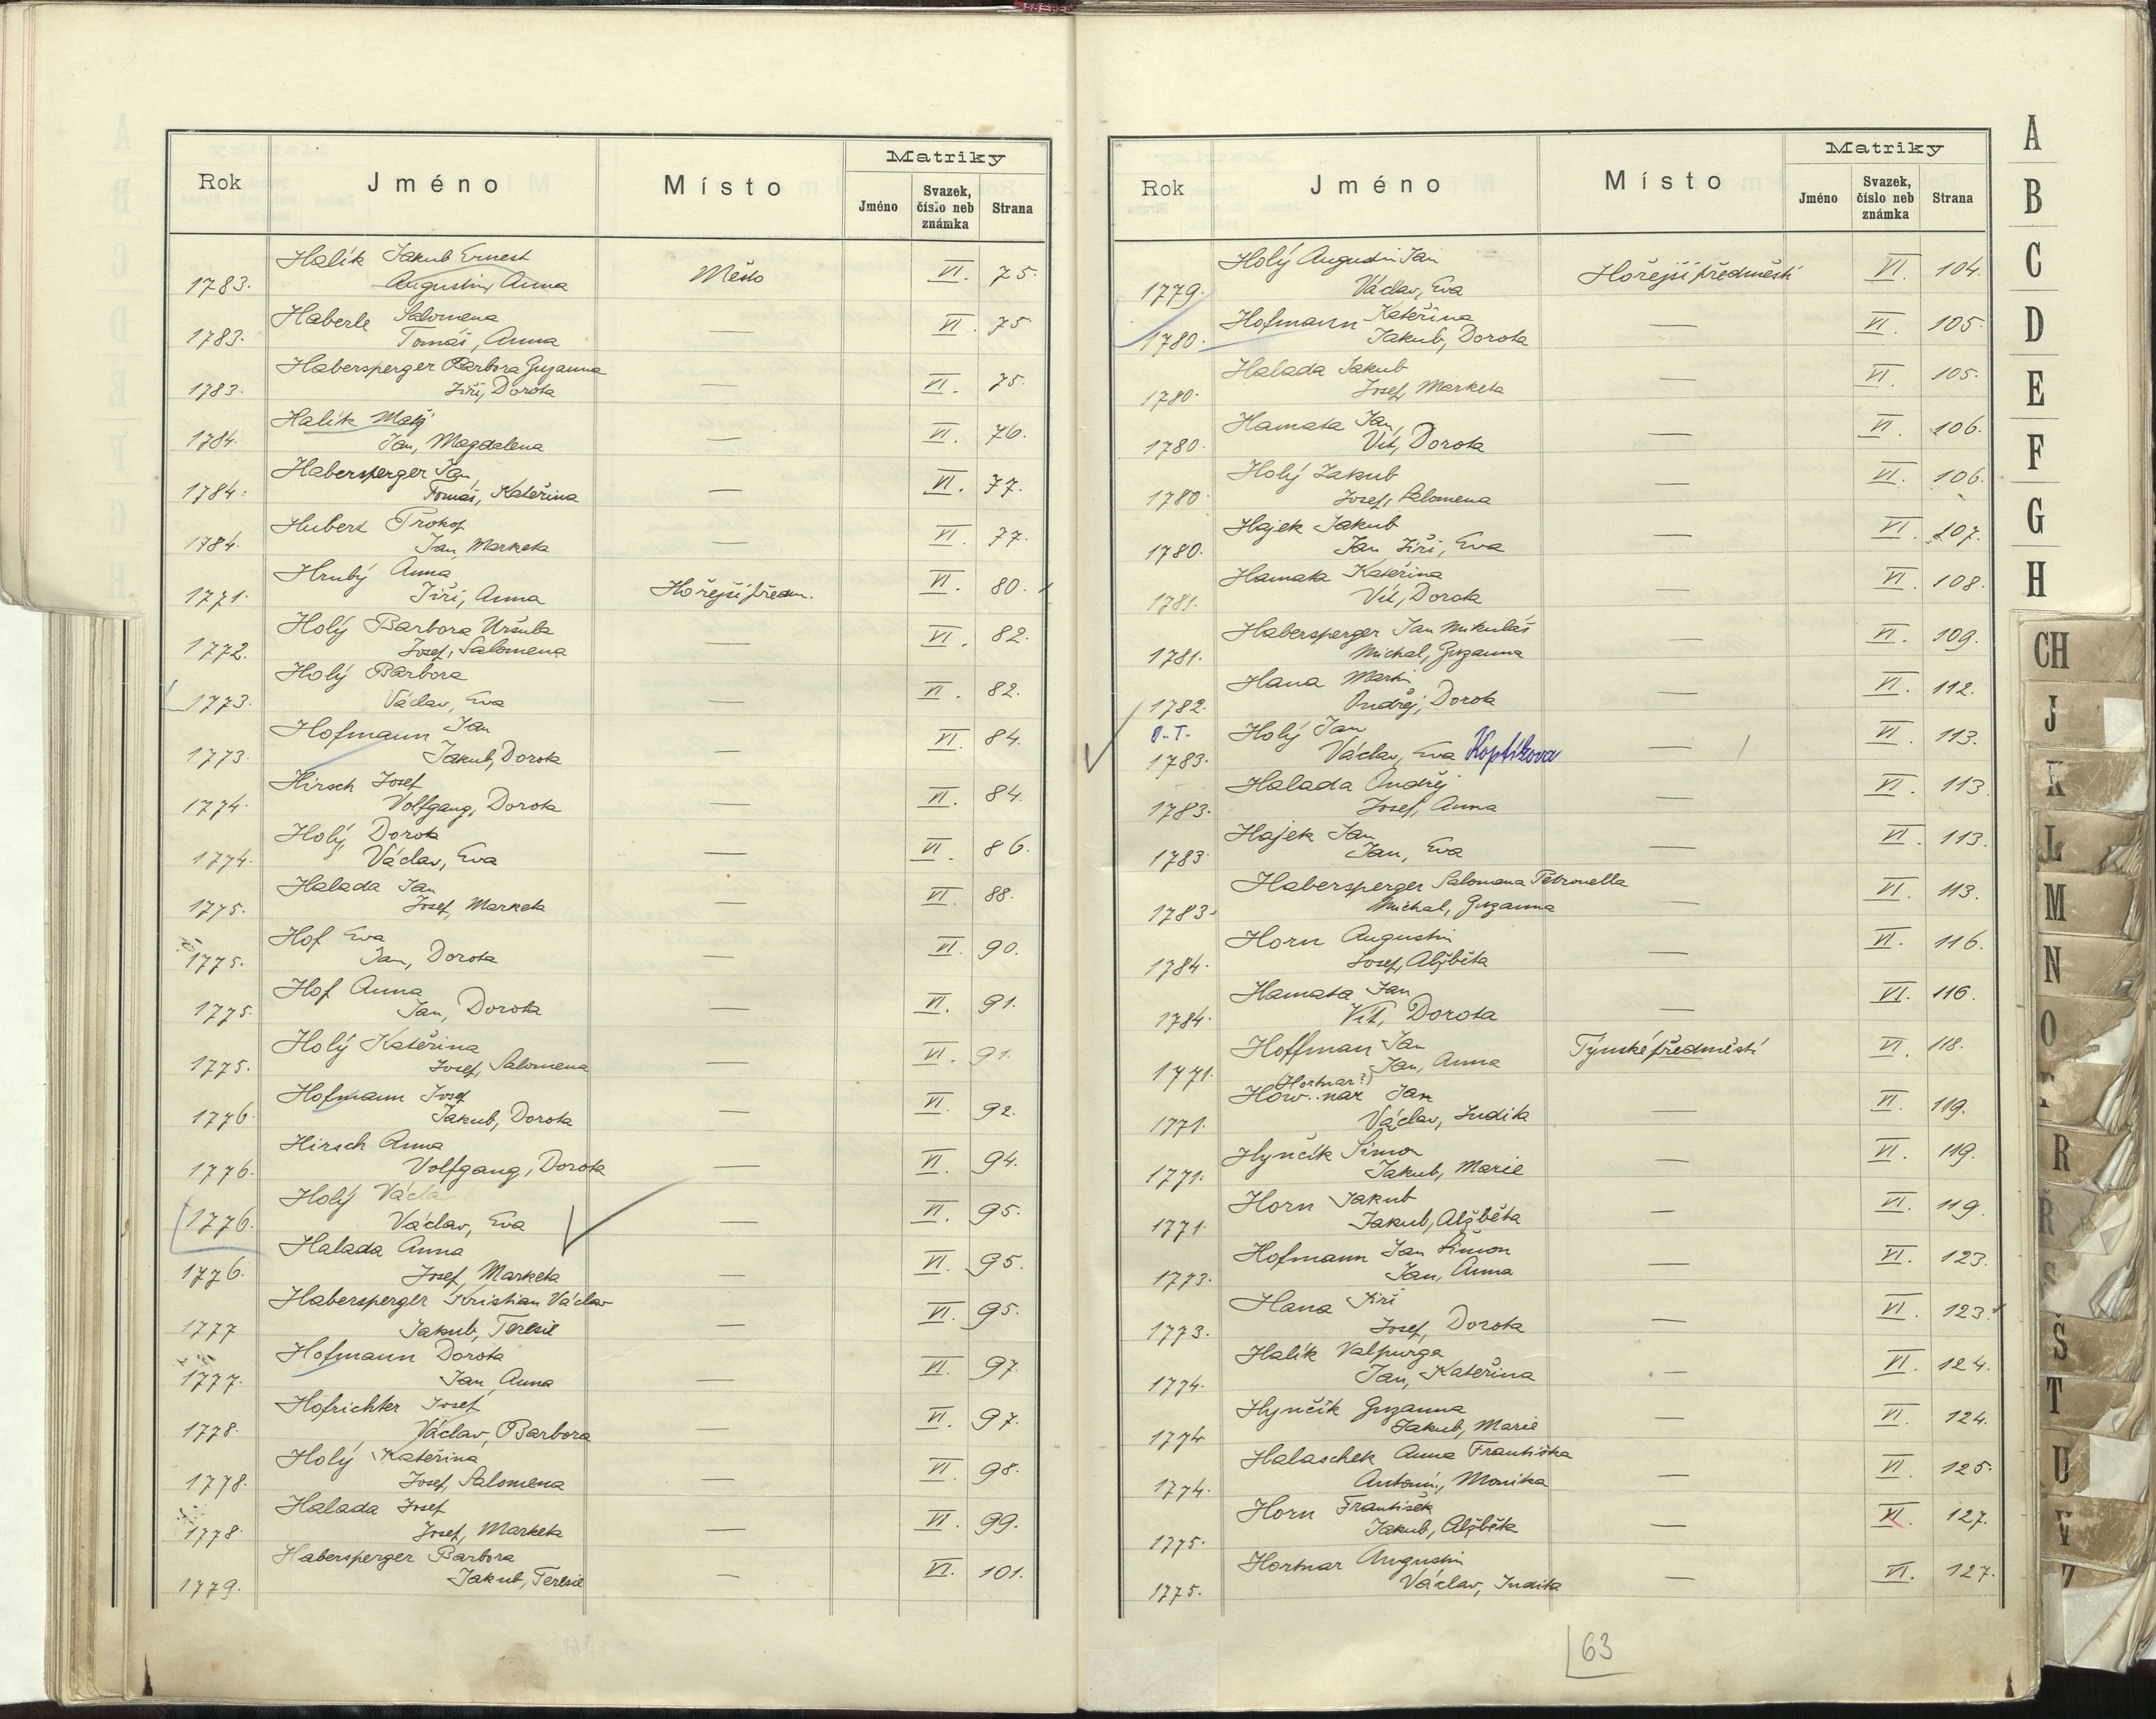 Rok Jméno Místo Matriky
Jméno Svazek, číslo neb známka Strana
Halík Jakub Ernest
1783. Augustin, Anna Město VI. 75.
Haberle Salomena
1783. Tomáš, Anna — VI. 75
Habersperger Barbora Zuzanna
1783. Jiří, Dorota — VI. 75.
Halík Matěj
1784. Jan, Magdalena — VI. 76.
Habersperger Jan
1784. Tomáš, Kateřina — VI. 77.
Hubert Prokop
1784. Jan, Marketa — VI. 77.
Hrubý Anna
1771. Jiří, Anna Hořejší předm. VI. 80.
Holý Barbora Uršula
1772. Josef, Salomena — VI. 82.
Holý Barbora
1773. Václav, Eva — VI. 82.
Hofmann Jan
1773. Jakub, Dorota — VI. 84.
Hirsch Josef
1774. Volfgang, Dorota — VI. 84.
Holý Dorota
1774. Václav, Eva — VI. 86.
Halada Jan
1775. Josef, Marketa — VI. 88.
Hof Eva
1775. Jan, Dorota — VI. 90.
Hof Anna
1775. Jan, Dorota — VI. 91.
Holý Kateřina
1775. Josef, Salomena — VI. 91.
Hofmann Josef
1776. Jakub, Dorota — VI. 92.
Hirsch Anna
1776. Volfgang, Dorota — VI. 94.
Holý Václav
1776. Václav, Eva — VI. 95.
Halada Anna
1776. Josef, Marketa — VI. 95.
Habersperger Kristian Václav
1777 Jakub, Teresie — VI. 95.
Hofmann Dorota
1777. Jan, Anna — VI. 97.
Hofrichter Josef
1778. Václav, Barbora — VI. 97.
Holý Kateřina
1778. Josef, Salomena — VI. 98.
Halada Josef
1778. Josef, Marketa — VI. 99.
Habersperger Barbora
1779. Jakub, Teresie — VI. 101.
Rok Jméno Místo Matriky
Jméno Svazek, číslo neb známka Strana
Holý Augustin Jan
1779. Václav, Eva Hořejší předměstí VI. 104.
Hofmann Kateřina
1780. Jakub, Dorota — VI. 105.
Halada Jakub
1780. Josef, Marketa — VI. 105.
Hamata Jan,
1780. Vít, Dorota — VI. 106.
Holý Jakub
1780. Josef, Salomena — VI. 106.
Hajek Jakub
1780. Jan Jiří, Eva — VI. 107.
Hamata Kateřina
1781. Vít, Dorota — VI. 108.
Habersperger Jan Mikuláš
1781. Michal, Zuzanna — VI. 109.
Hana Martin
1782. Ondřej, Dorota — VI. 112.
O. T. Holý Jan
1783. Václav, Eva Koptíkova — VI. 113.
Halada Ondřej
1783. Josef, Anna — VI. 113.
Hajek Jan
1783. Jan, Eva — VI. 113.
Habersperger Salomena Petronella
1783. Michal, Zuzanna — VI. 113.
Horn Augustin
1784. Josef, Alžběta — VI. 116.
Hamata Jan
1784. Vít, Dorota — VI. 116.
Hoffman Jan
1771. Jan, Anna Týnské předměstí VI. 118.
(Hortnar?)
How..nar Jan
1771. Václav, Judita — VI. 119.
Hynčík Šimon
1771. Jakub, Marie — VI. 119.
Horn Jakub
1771. Jakub, Alžběta — VI. 119.
Hofmann Jan Šimon
1773. Jan, Anna — VI. 123.
Hana Jiří
1773. Josef, Dorota — VI. 123.
Halík Valpurga
1774. Jan, Kateřina — VI. 124.
Hynčík Zuzanna
1774 Jakub, Marie — VI. 124.
Halaschek Anna Františka
1774. Antonín, Monika — VI. 125.
Horn František
1775. Jakub, Alžběta — VI. 127.
Hortnar Augustin
1775. Václav, Judita — VI. 127.
63
A
B
C
D
E
F
G
H
CH
J
K
L
M
N
O
R
Ř
S
Š
T
U
V